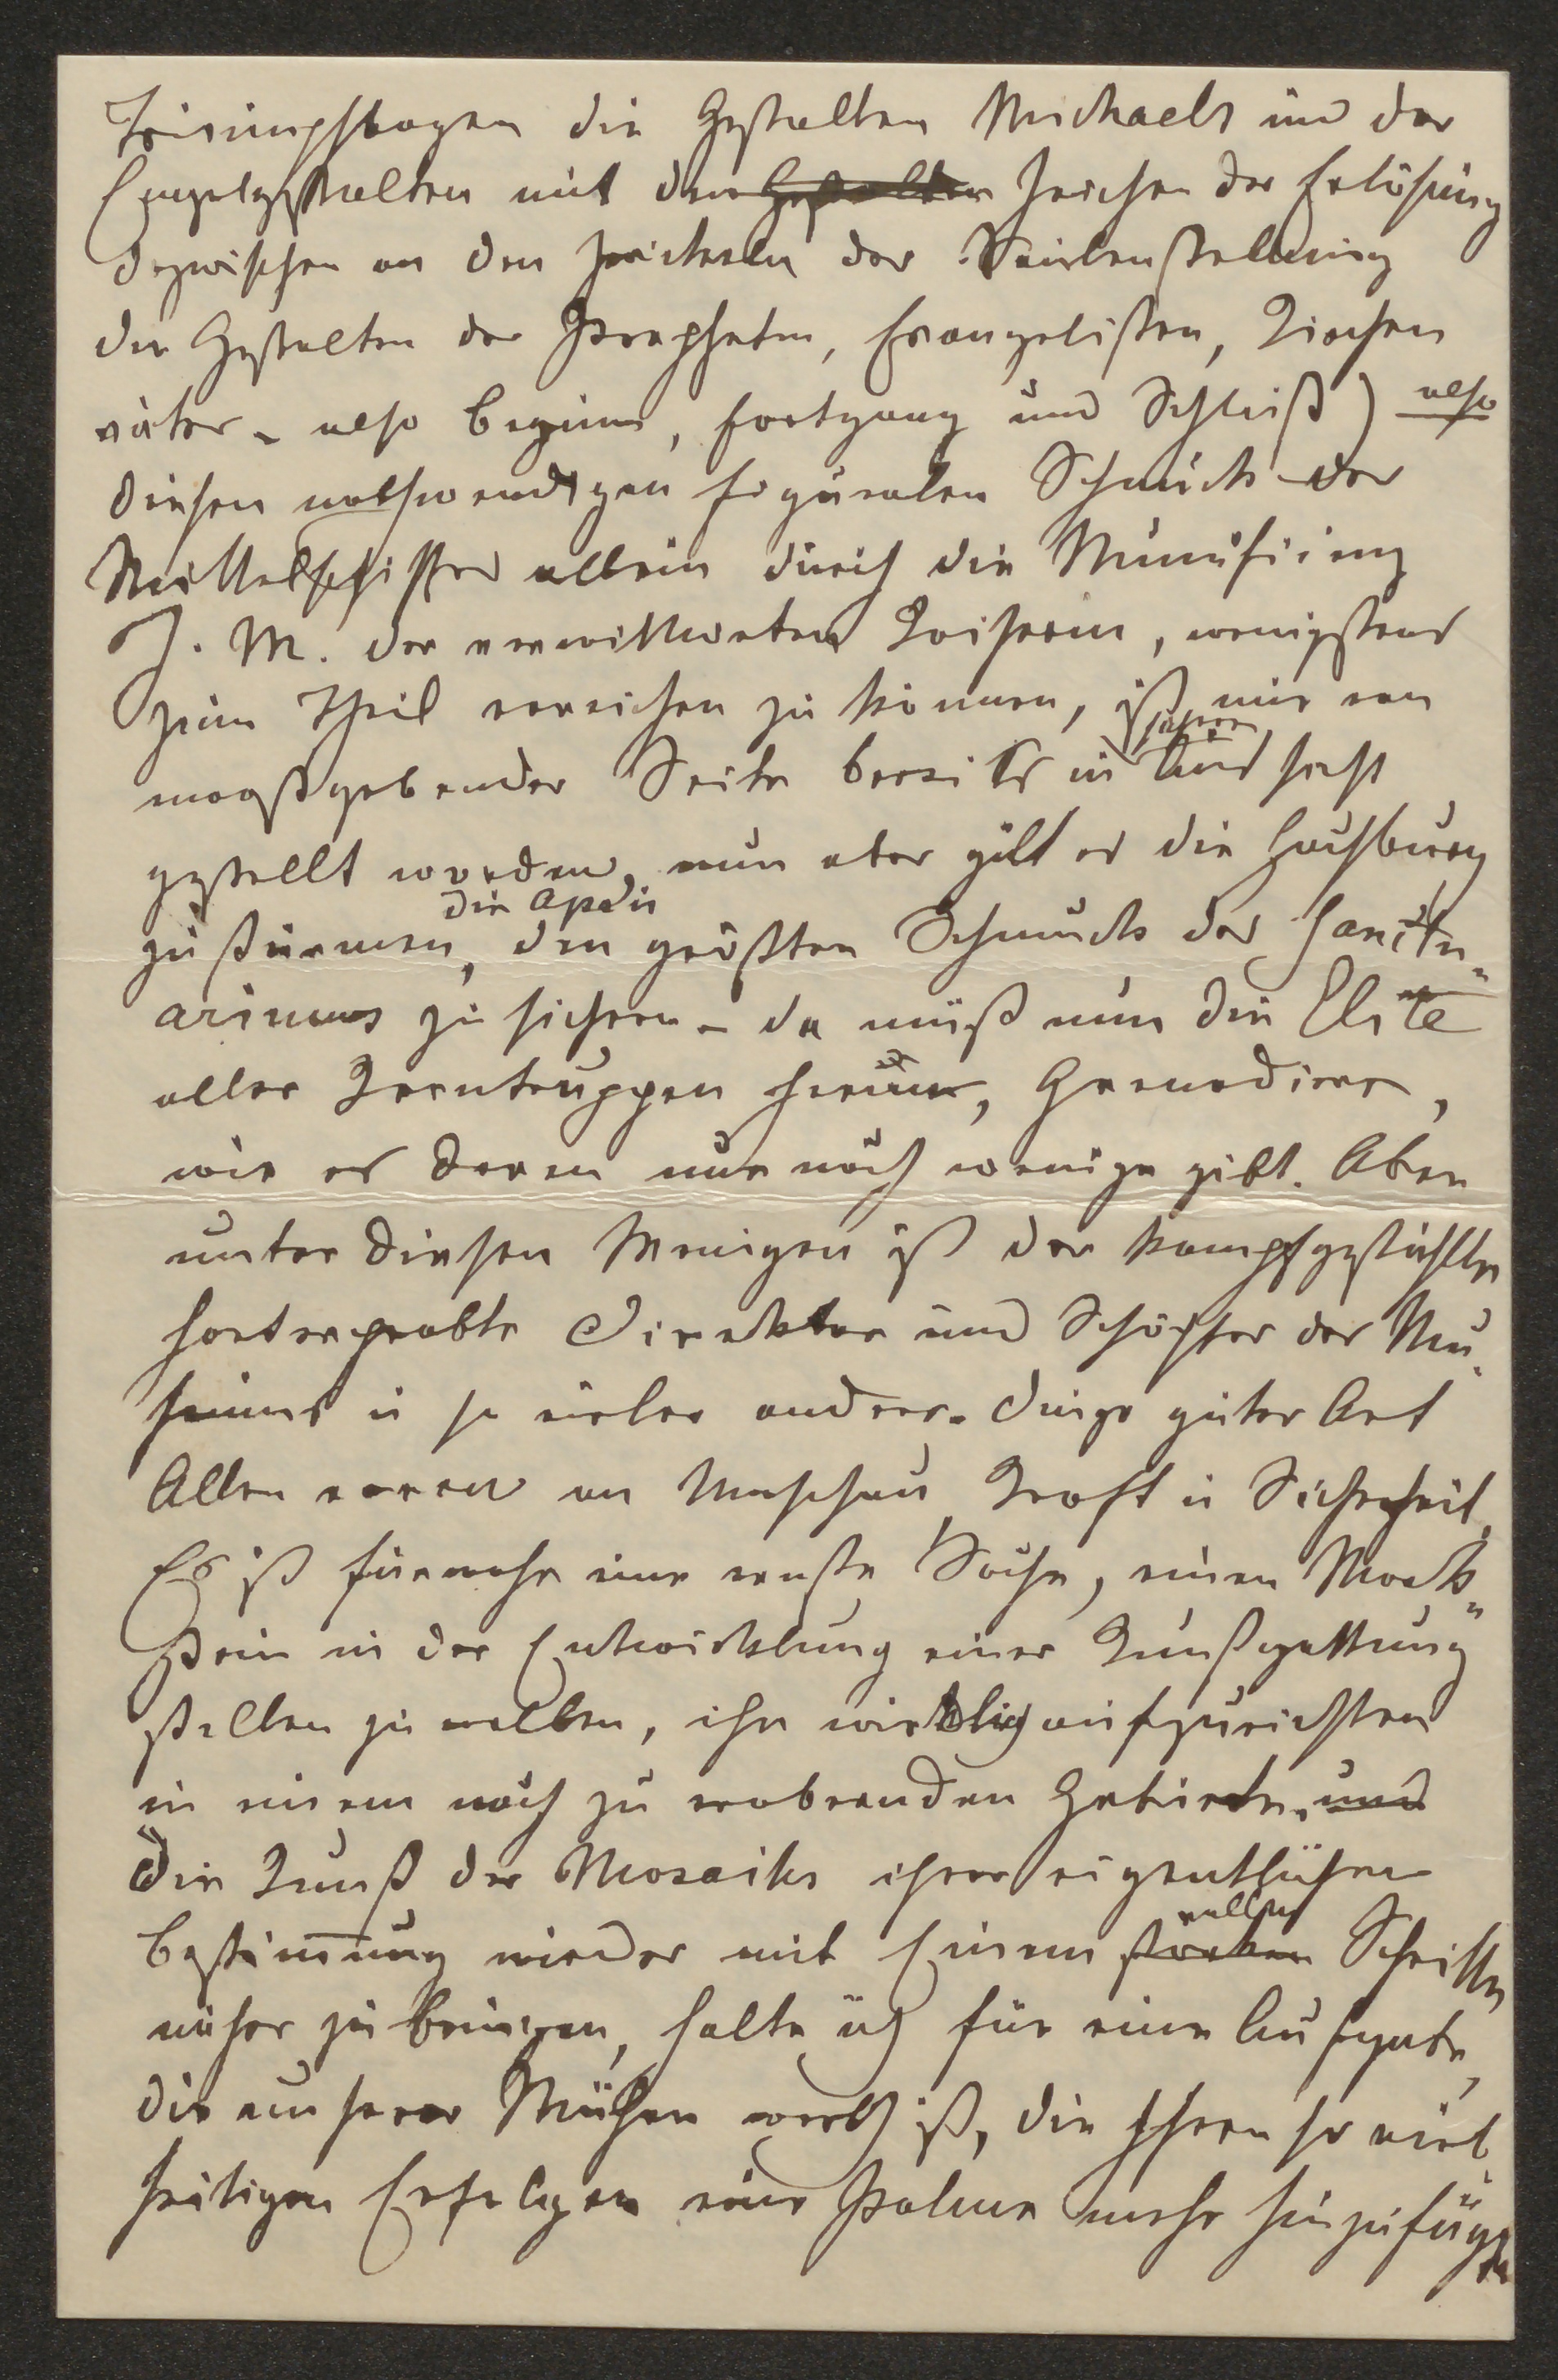 Triumpfbogen die Gestalten Michaels und der
Engelgestalten mit den Gestalten Zeichen der Erlösung
dazwischen an den Zwickeln der Säulenstellung
die Gestalten der Propheten, Evangelisten, Kirchen
väter – also Beginn, Fortgang und Schluß) also
diesen nothwendigen figuralen Schmuck des
Mittelschiffes allein durch die Munifizienz
I. M. der verwittweten Kaiserin, wenigstens
zum Theil erreichen zu können, ist mir von
maaßgebender Seite bereits in sichere Aussicht
gestellt worden, nun aber gilt es die Hochburg
zu stürmen, die Apsis den größten Schmuck des Sanctu„
ariums zu sichern – da muß nun die Elite
aller Kerntruppen heran, Grenadiere,
wie es deren nur noch wenige gibt. Aber
unter diesen Wenigen ist der kampfgestählte
harterprobte Direktor und Schöpfer des Mu„
seums u so vieler anderer Dinge guter Art
Allen voran an Umschau, Kraft u Sicherheit.
Es ist fürwahr eine ernste Sache, einen Mark„
stein in der Entwicklung einer Kunstgattung
stellen zu wollen, ihn wirklich aufzurichten
in einem noch zu erobernden Gebiete. und
Die Kunst des Mosaiks ihrer eigentlichen
Bestimmung wieder mit Einem starken vollen Schritte
näher zu bringen, halte ich für eine Aufgabe,
die unserer Mühen werth ist, die Ihren so viel„
seitigen Erfolgen eine Palme mehr hinzufügte